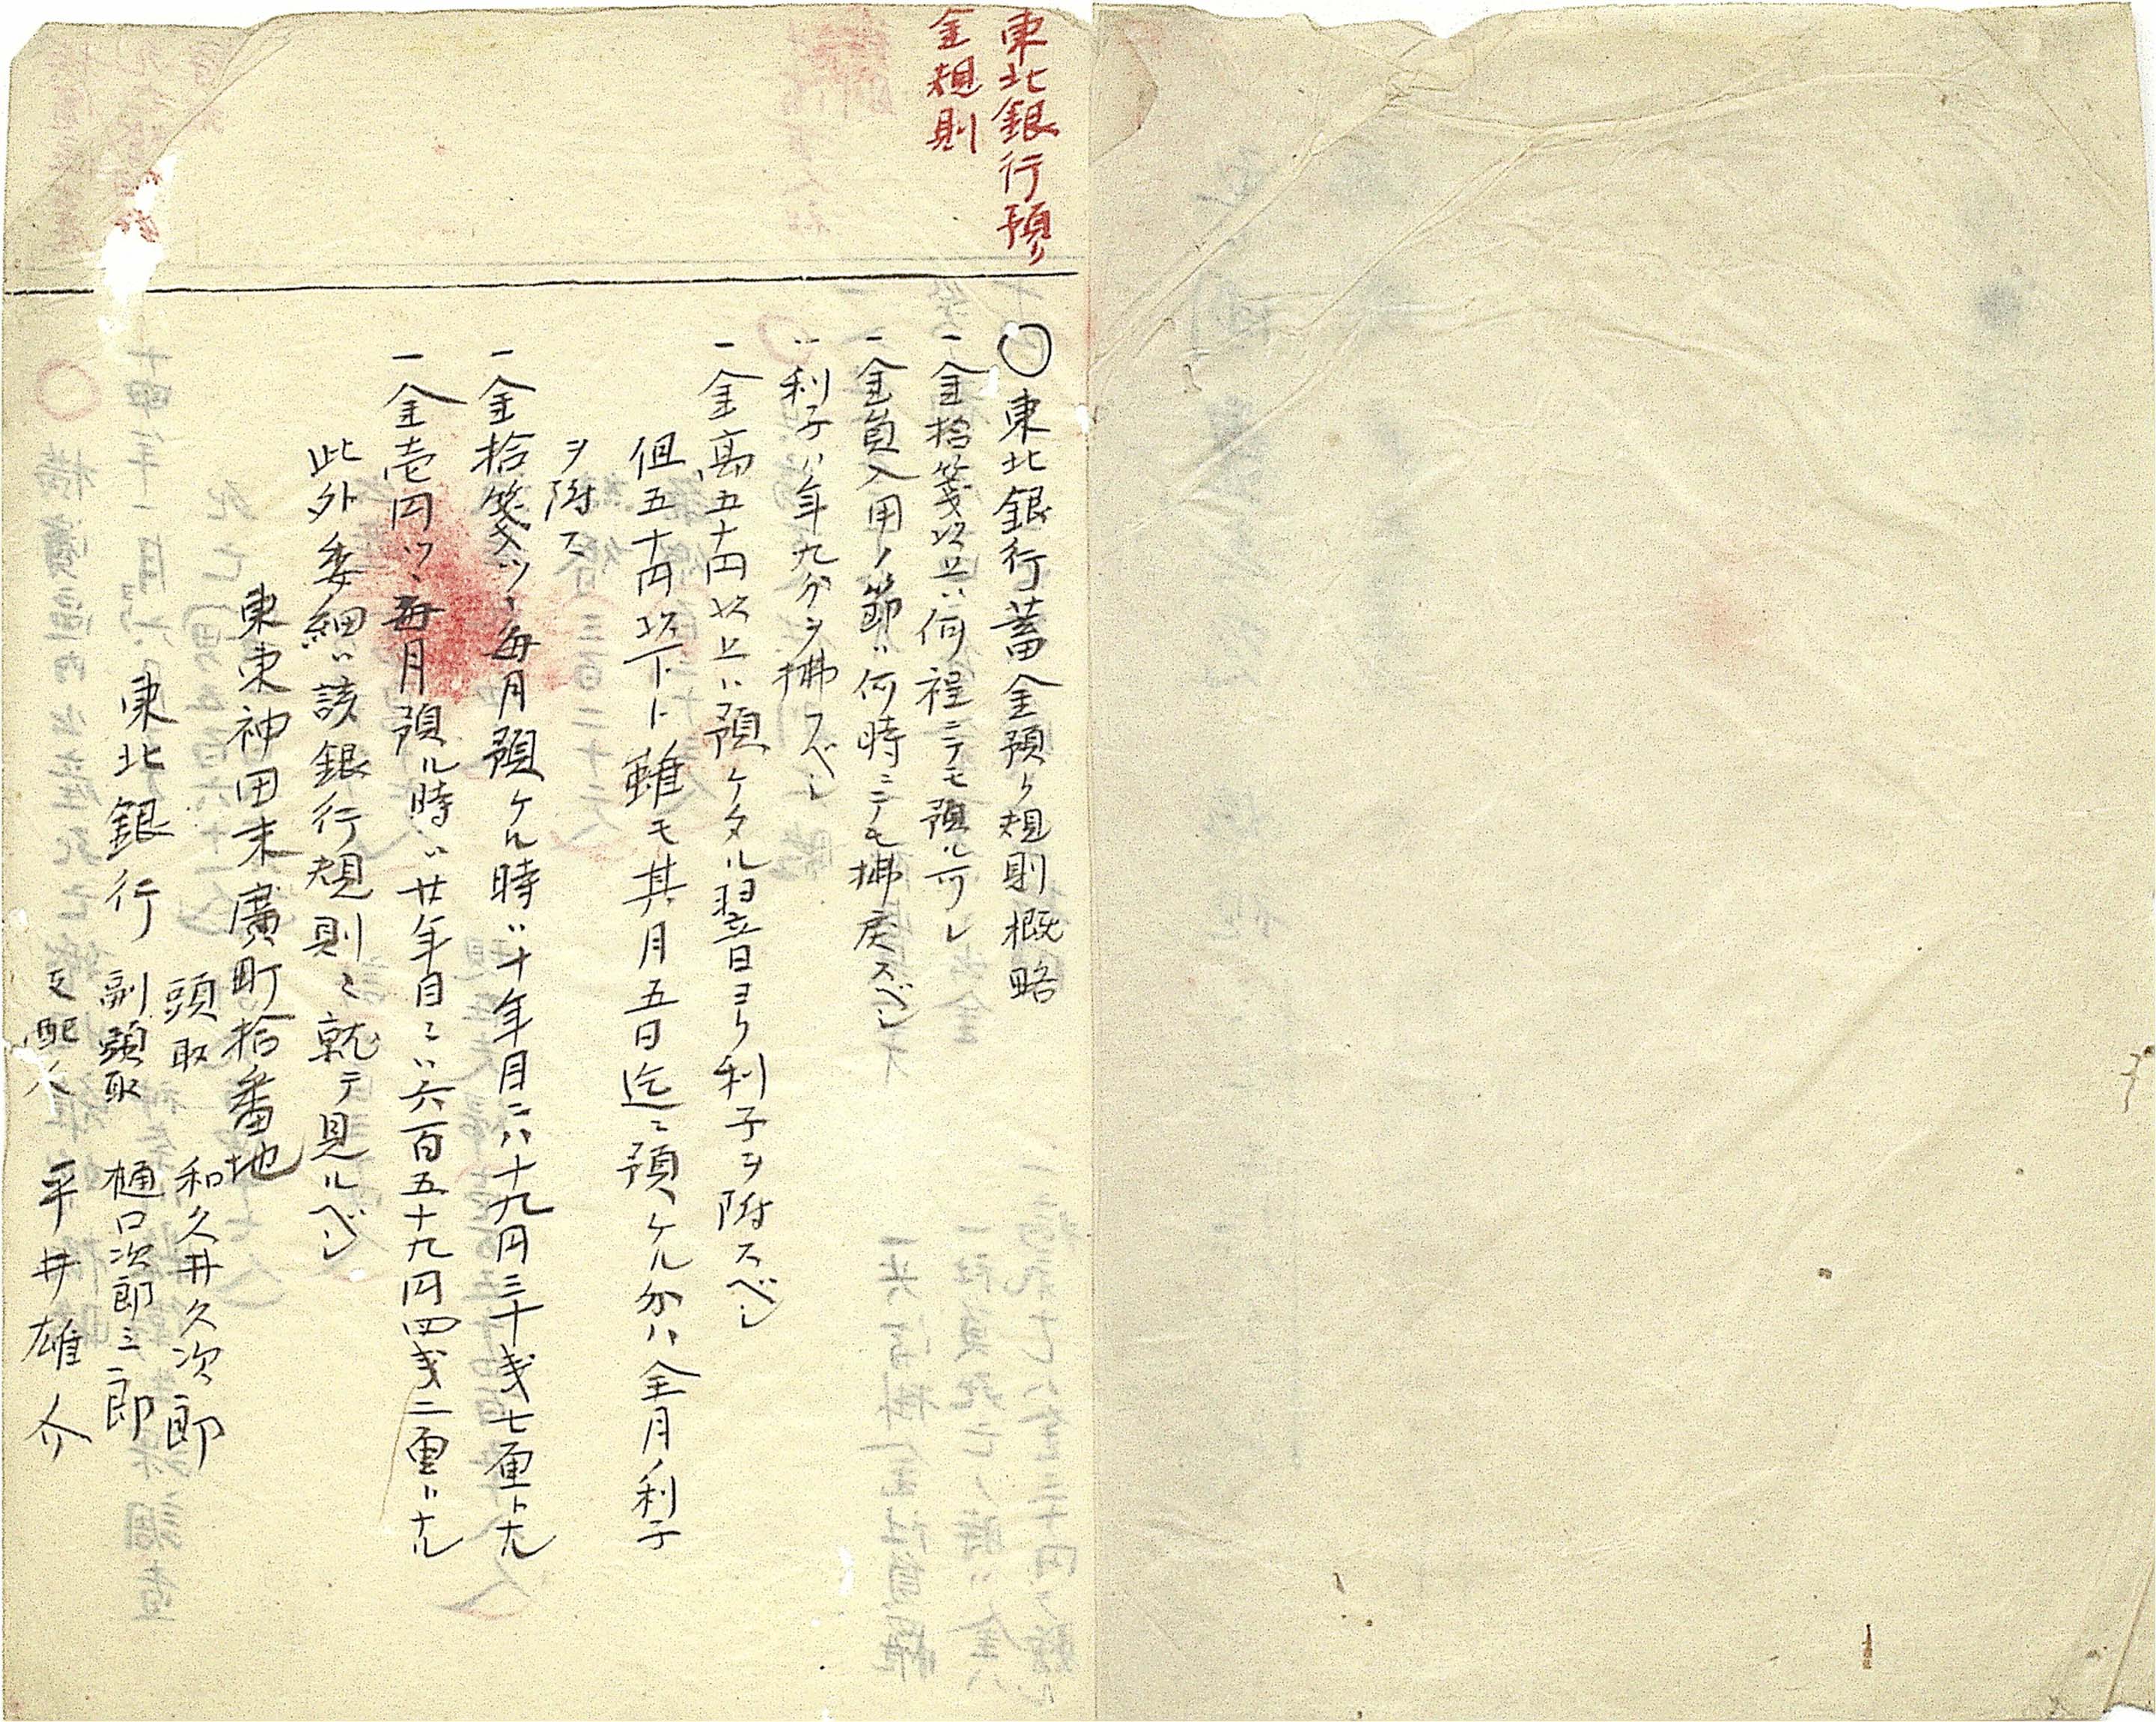 東北銀行預リ
金規則
〇東北銀行蓄金預ケ規則概略
一金拾箋以上ハ何程ニテモ預ル可シ
一金負入用ノ節ハ何時ニテモ拂戻スベシ
一利子ハ年九分ヲ拂フベシ
一金高五十円以上ハ預ケタル翌日ヨリ利子ヲ附スベシ
但五十円以下ト雖モ其月五日迄ニ預ケル分ハ全月ノ利子
ヲ附ス
一金拾箋ツヽ毎月預ケル時ハ十年目ニハ十九円三十戋七厘トナル
一金壱円ツヽ毎月預ル時ハ廿年目ニハ六百五十九円四戋二厘トナル
此外委細ハ該銀行規則ニ就テ見ルベシ
東東神田末廣町拾番地
東北銀行
頭取 和久井久次郎
副頭取 樋口次郎三郎
支配人 平井雄介